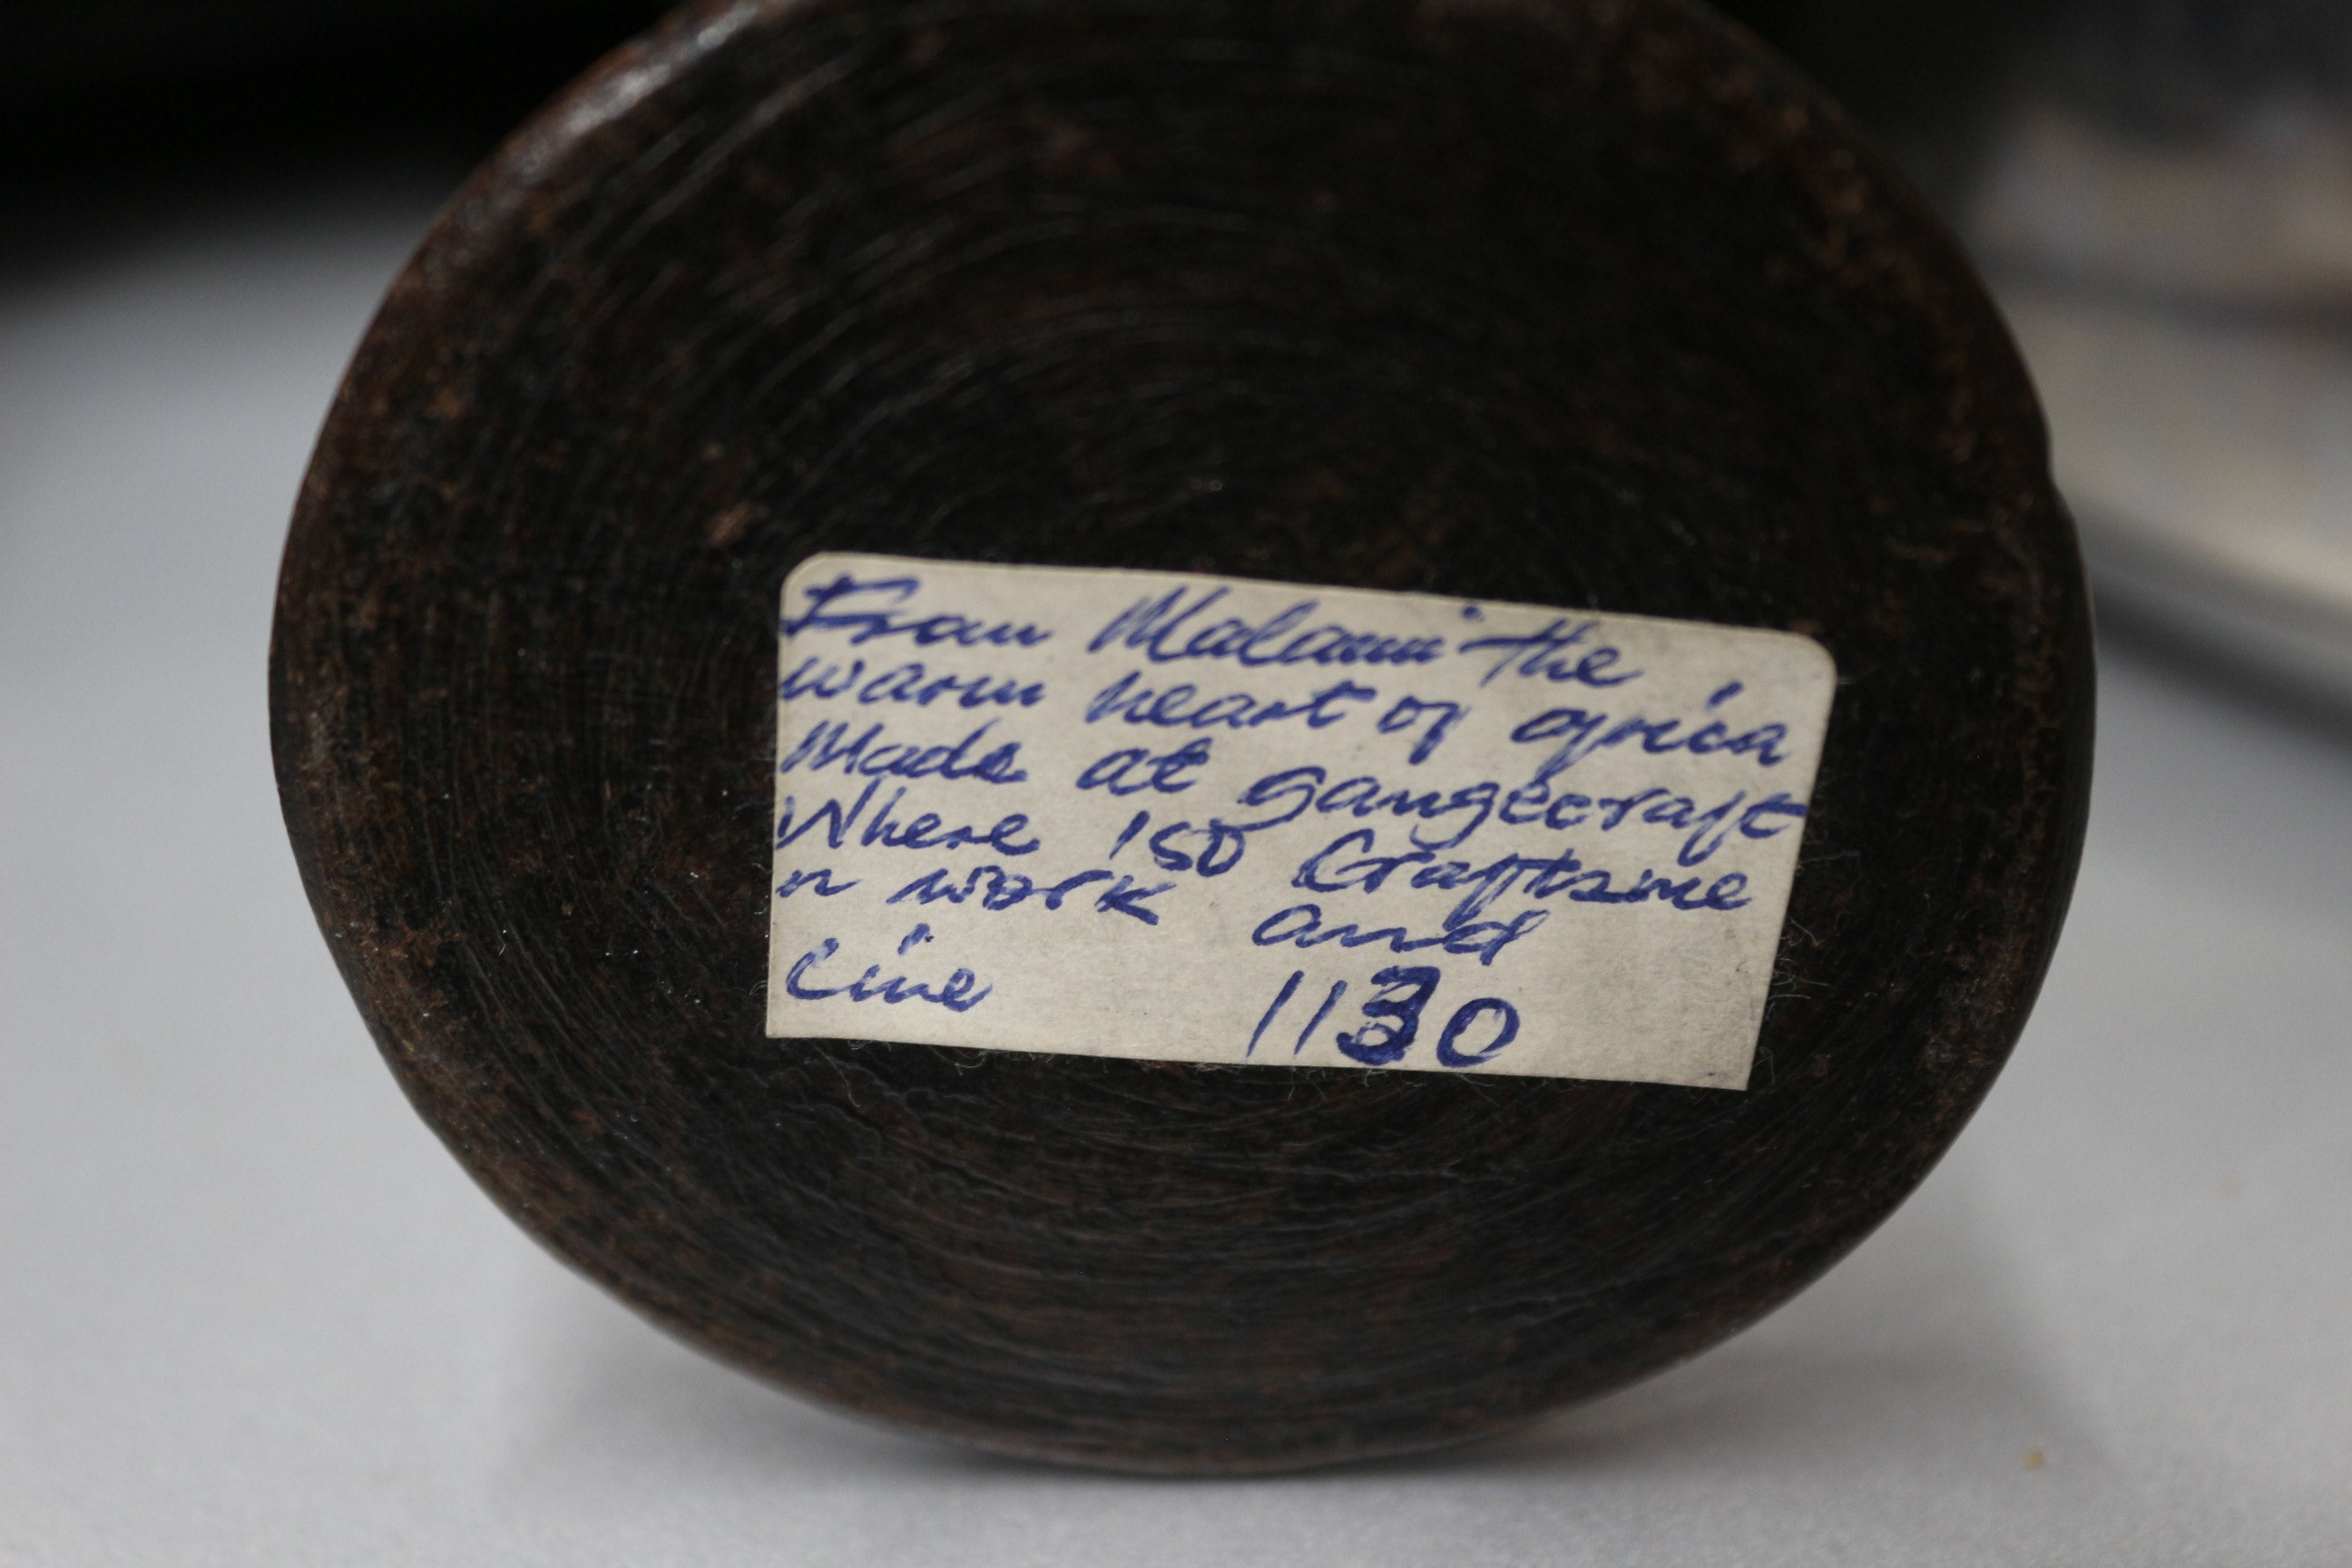 From Malawi the
warm heart of africa
Made at gangecraft
Where 150 Craftsme
n work and
Live 1130